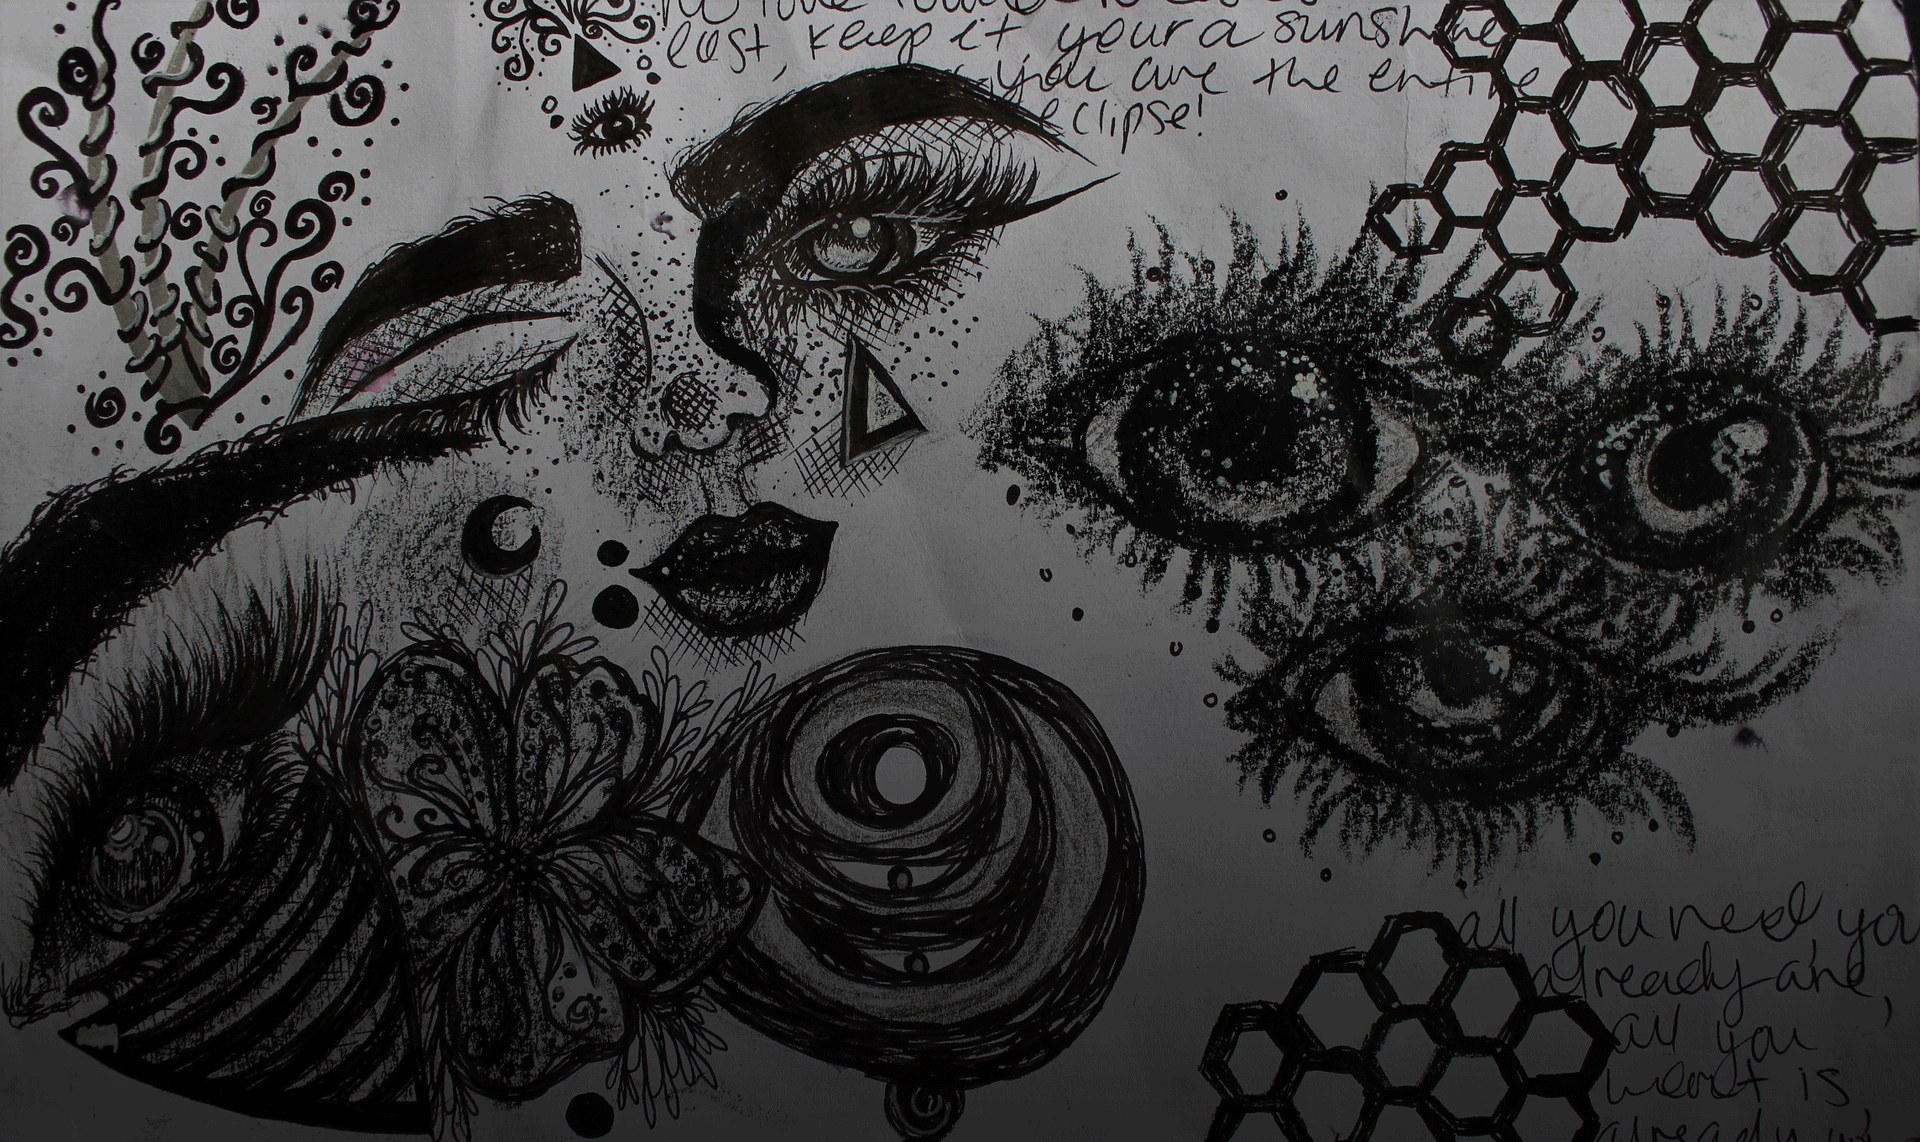 last, keep it, your a sunshine
you are the entire
eclipse!
all you need you
already are,
all you
want is,
already